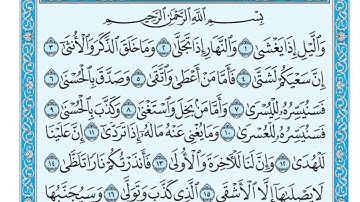 بِسْمِ اللَّهِ الرَّحْمَٰنِ الرَّحِيمِ
وَالَّيْلِ إِذَا يَغْشَىٰ ١ وَالنَّهَارِ إِذَا تَجَلَّىٰ ٢ وَمَا خَلَقَ الذَّكَرَ وَالْأُنثَىٰ ٣
إِنَّ سَعْيَكُمْ لَشَتَّىٰ ٤ فَأَمَّا مَنْ أَعْطَىٰ وَاتَّقَىٰ ٥ وَصَدَّقَ بِالْحُسْنَىٰ ٦
فَسَنُيَسِّرُهُ لِلْيُسْرَىٰ ٧ وَأَمَّا مَنْ بَخِلَ وَاسْتَغْنَىٰ ٨ وَكَذَّبَ بِالْحُسْنَىٰ ٩
فَسَنُيَسِّرُهُ لِلْعُسْرَىٰ ١٠ وَمَا يُغْنِي عَنْهُ مَالُهُ إِذَا تَرَدَّىٰ ١١ إِنَّ عَلَيْنَا
لَلْهُدَىٰ ١٢ وَإِنَّ لَنَا لَلْآخِرَةَ وَالْأُولَىٰ ١٣ فَأَنذَرْتُكُمْ نَارًا تَلَظَّىٰ ١٤
لَا يَصْلَاهَا إِلَّا الْأَشْقَى ١٥ الَّذِي كَذَّبَ وَتَوَلَّىٰ ١٦ وَسَيُجَنَّبُهَا